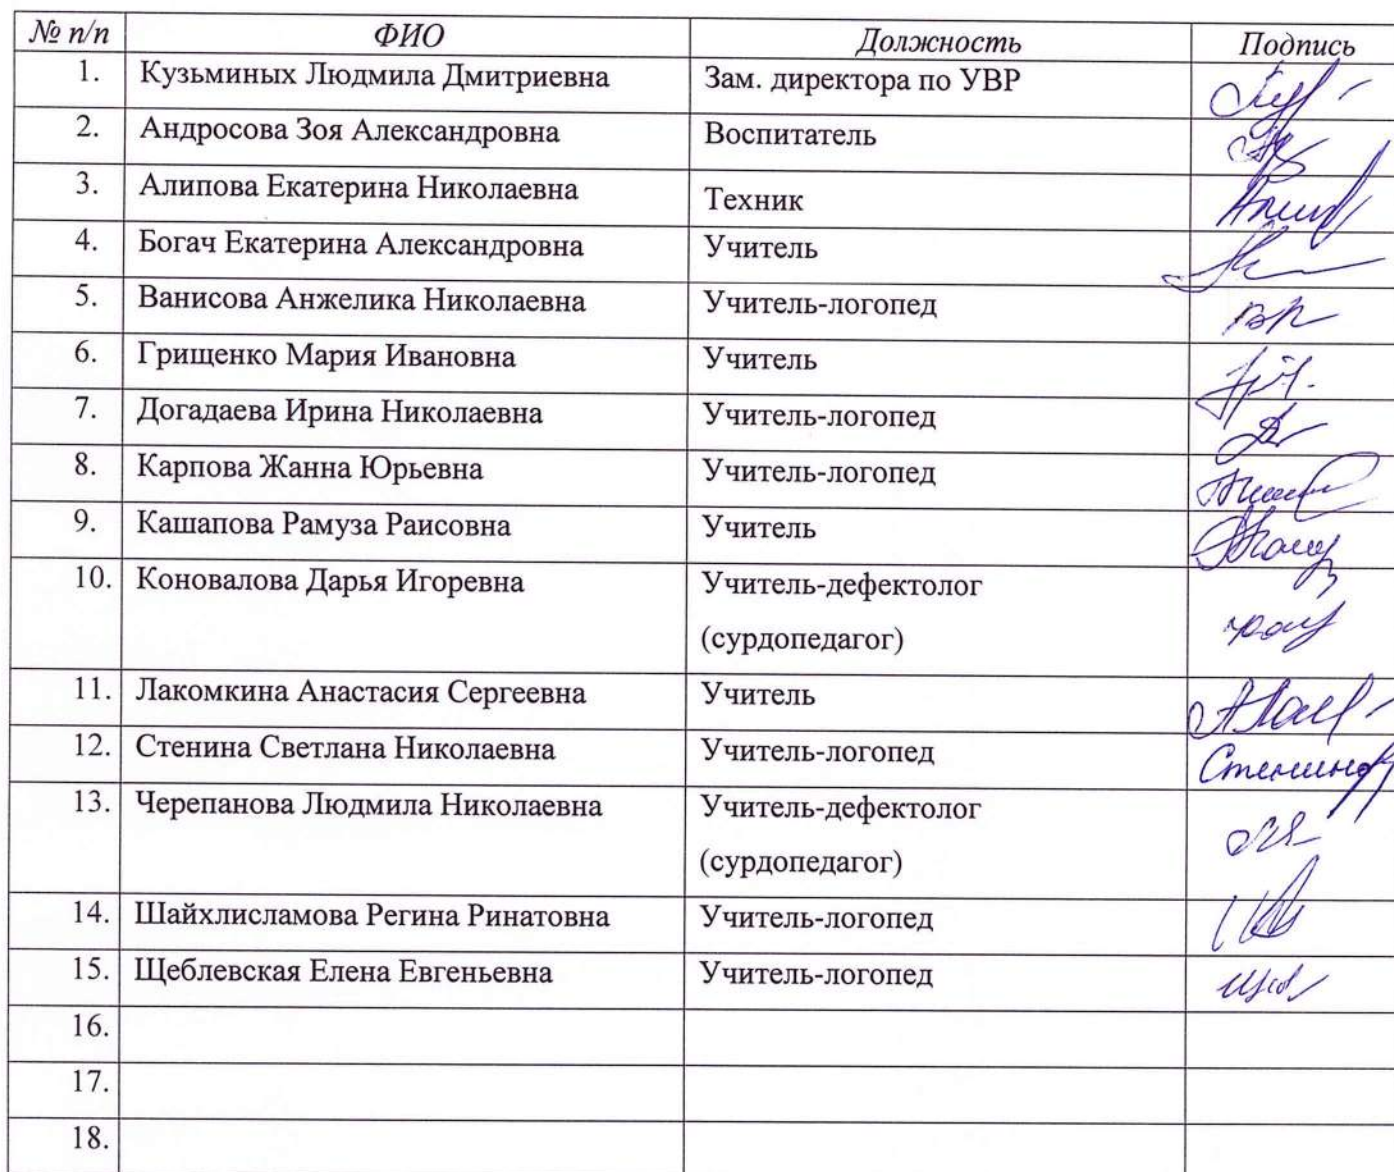 № п/п ФИО Должность Подпись
1. Кузьминых Людмила Дмитриевна Зам. директора по УВР
2. Андросова Зоя Александровна Воспитатель
3. Алипова Екатерина Николаевна Техник
4. Богач Екатерина Александровна Учитель
5. Ванисова Анжелика Николаевна Учитель-логопед
6. Грищенко Мария Ивановна Учитель
7. Догадаева Ирина Николаевна Учитель-логопед
8. Карпова Жанна Юрьевна Учитель-логопед
9. Кашапова Рамуза Раисовна Учитель
10. Коновалова Дарья Игоревна Учитель-дефектолог
(сурдопедагог)
11. Лакомкина Анастасия Сергеевна Учитель
12. Стенина Светлана Николаевна Учитель-логопед
13. Черепанова Людмила Николаевна Учитель-дефектолог
(сурдопедагог)
14. Шайхлисламова Регина Ринатовна Учитель-логопед
15. Щеблевская Елена Евгеньевна Учитель-логопед
16.
17.
18.